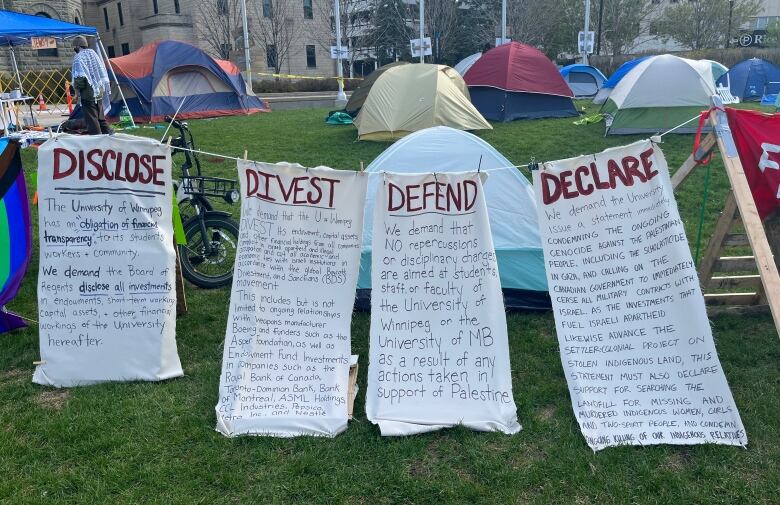 DISCLOSE
The University of Winnipeg
has an "obligation of financial
transparency" to its students
workers + community.
We demand the Board of
Regents disclose all investments
in endowments, short-term working
capital assets, + other financial
workings of the University
hereafter.
DIVEST
We demand that the U of Winnipeg
DIVEST its endowment, capital assets
and other financial holdings from all
companies
and cut all academic and
economic ties with Israeli institutions in
accordance with the global Boycott
Divestment and Sanctions (BDS)
This includes but is not
limited to ongoing relationships
with weapons manufacturer
Boeing and funders such as the
Asper Foundation, as well as
Endowment Fund Investments
in companies such as the
Royal Bank of Canada,
Toronto-Dominion Bank, Bank
of Montreal, ASML Holdings
CCL Industries, Pepsico,
Inc., and Nestlé
DEFEND
We demand that
NO repercussions
or disciplinary charges
are aimed at students,
staff, or faculty of
the University of
Winnipeg or the
University of MB
as a result of any
actions taken in
support of Palestine
DECLARE
We demand the University
issue a statement immediately
condemning the ongoing
genocide against the Palestinian
people, including the scholasticide
in Gaza, and calling on the
Canadian government to immediately
cease all military contracts with
Israel. As the investments that
fuel Israeli apartheid
likewise advance the
settler-colonial project on
stolen Indigenous land, this
statement must also declare
support for searching the
landfill for missing and
murdered Indigenous women, girls
and two-spirit people, and condemn
ongoing killing of our Indigenous relatives